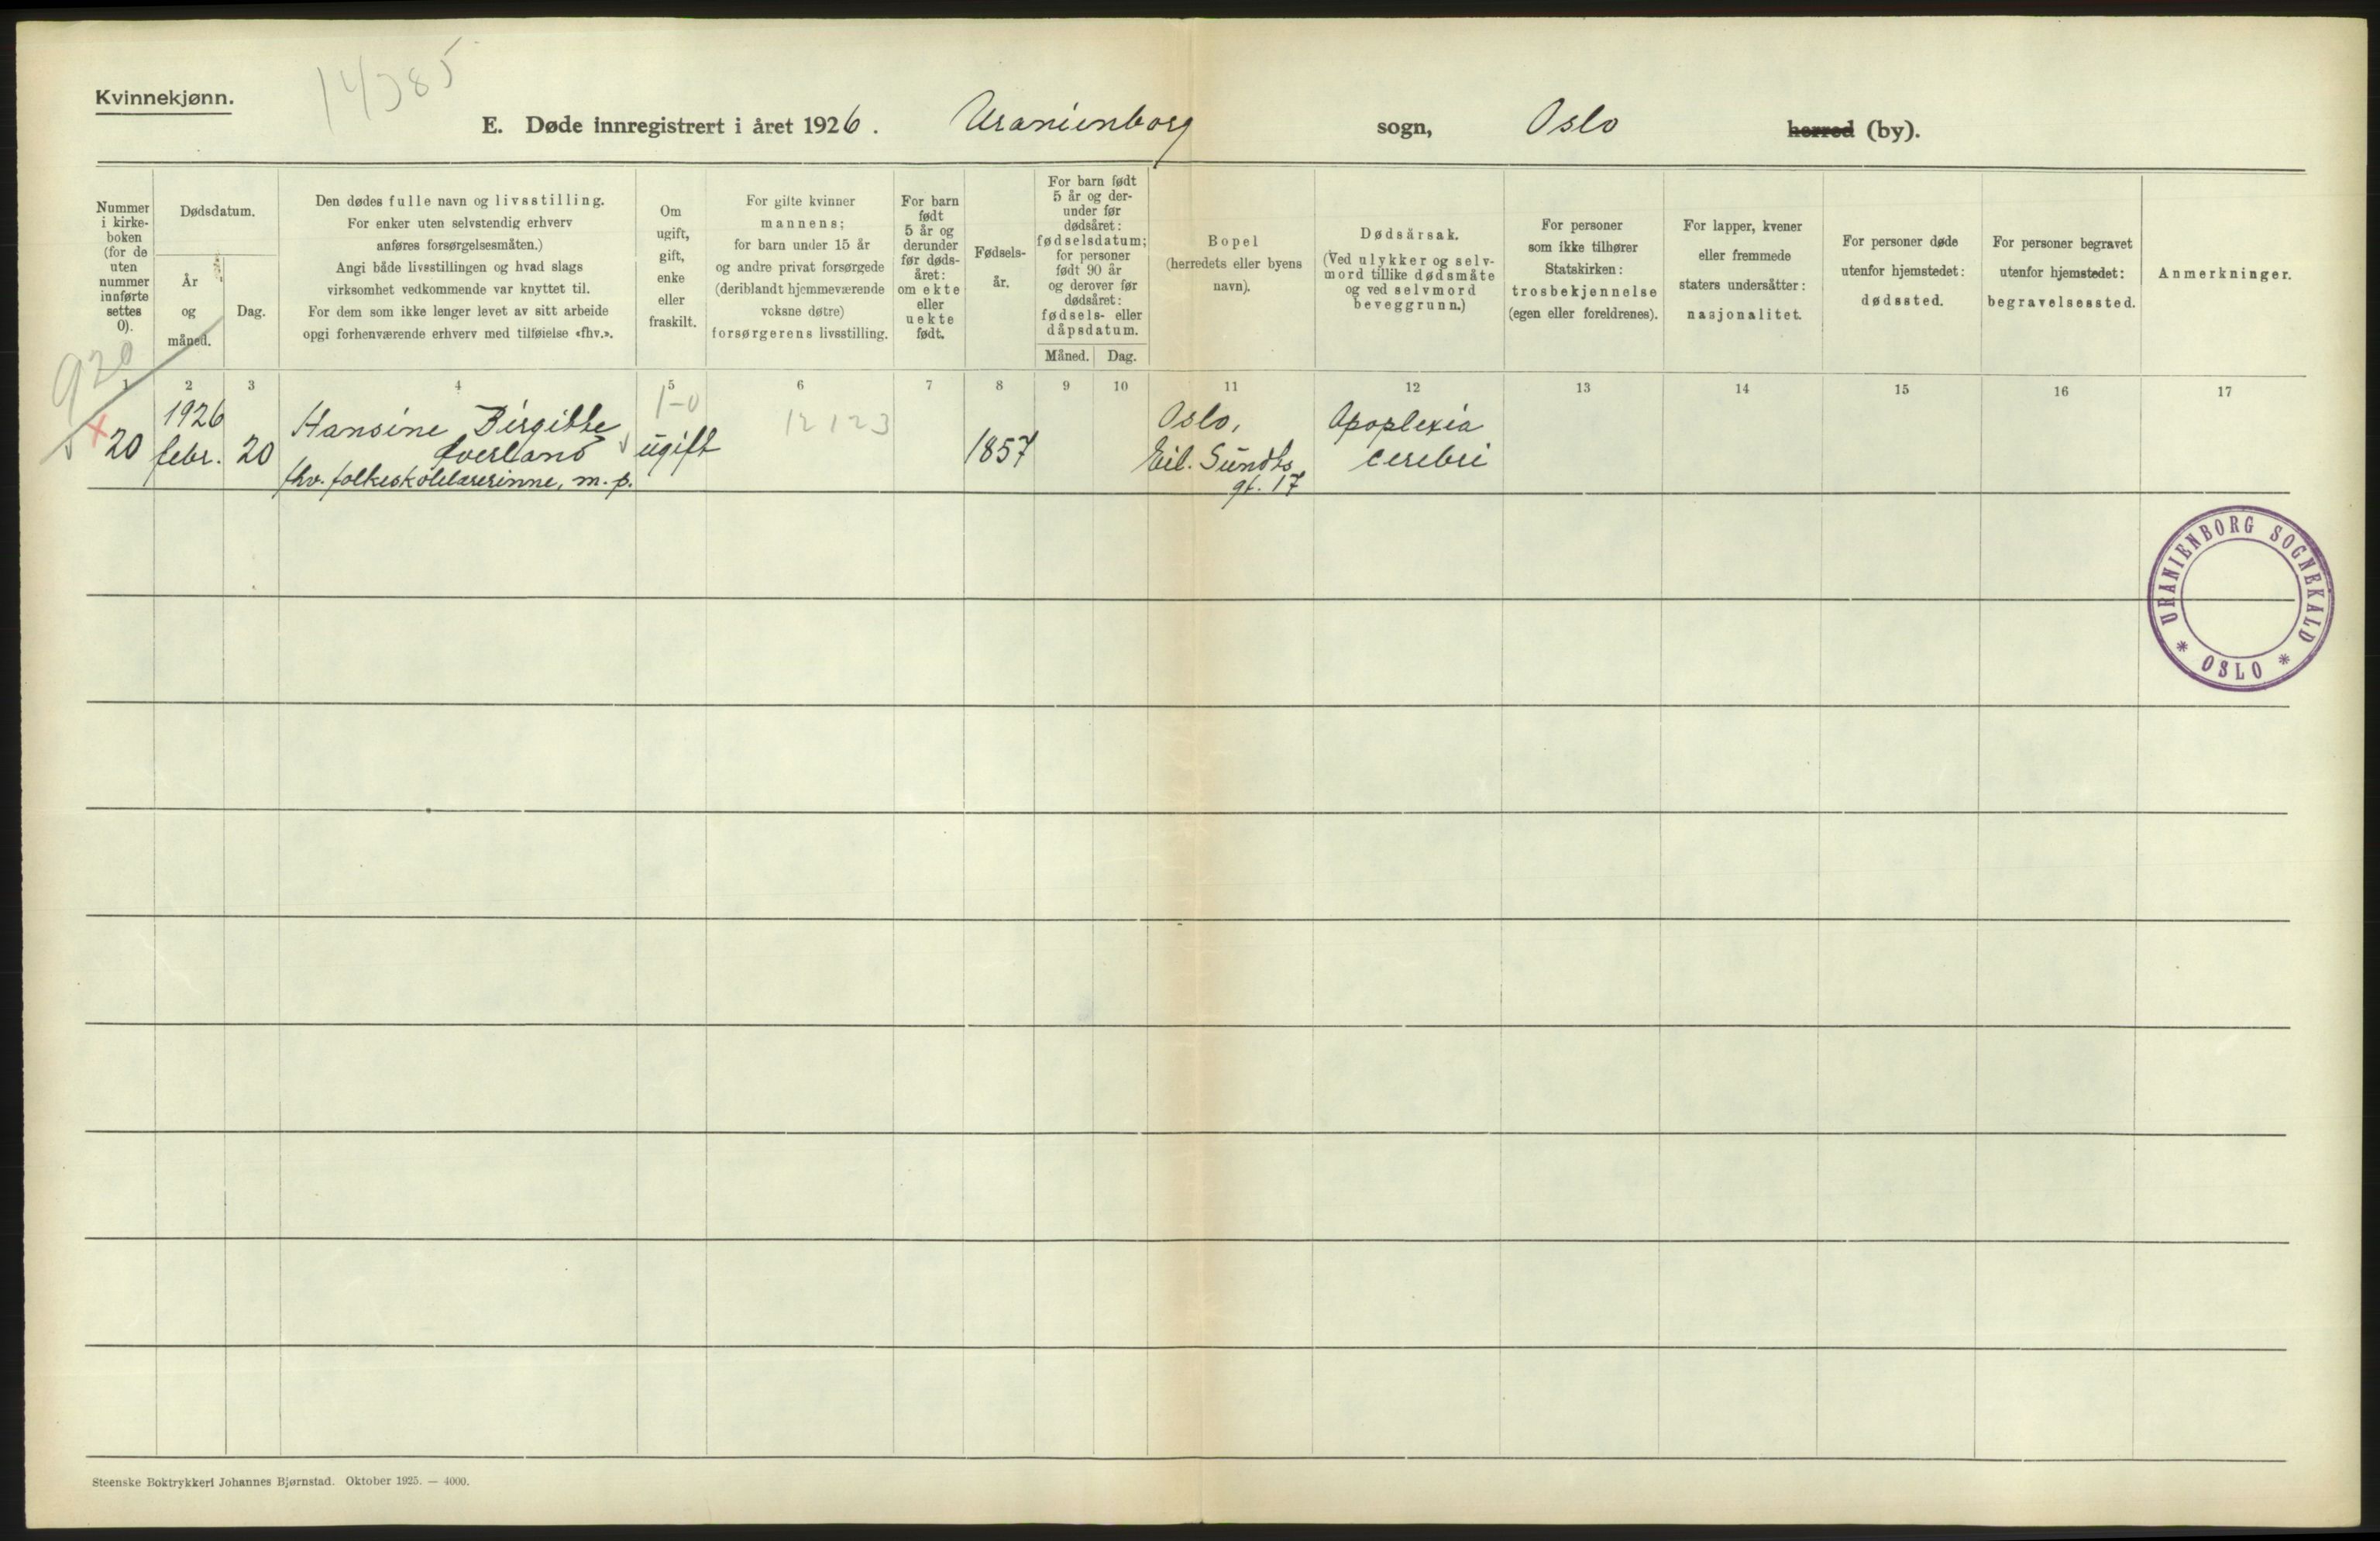 Kvinnekjønn.
14385
E. Døde innregistrert i året 1926. Uranienborg sogn, Oslo herred (by).
Nummer
i kirke-
boken
(for de
uten
nummer
innførte
settes
0).
Dødsdatum.
År
og
måned.
Dag.
Den dødes fulle navn og livsstilling.
For enker uten selvstendig erhverv
anføres forsørgelsesmåten.)
Angi både livsstillingen og hvad slags
virksomhet vedkommende var knyttet til.
For dem som ikke lenger levet av sitt arbeide
opgi forhenværende erhverv med tilføielse «fhv.».
Om
ugift,
gift,
enke
eller
fraskilt.
For gifte kvinner
mannens;
for barn under 15 år
og andre privat forsørgede
(deriblandt hjemmeværende
voksne døtre)
forsørgerens livsstilling.
For barn
født
5 år og
derunder
før døds-
året:
om ekte
eller
uekte
født.
Fødsels-
år.
For barn født
5 år og der-
under før
dødsåret:
fødselsdatum;
for personer
født 90 år
og derover før
dødsåret:
fødsels- eller
dåpsdatum.
Måned. Dag.
Bopel
(herredets eller byens
navn).
Dødsårsak.
(Ved ulykker og selv-
mord tillike dødsmåte
og ved selvmord
beveggrunn.)
For personer
som ikke tilhører
Statskirken:
trosbekjennelse
(egen eller foreldrenes).
For lapper, kvener
eller fremmede
staters undersåtter:
nasjonalitet.
For personer døde
utenfor hjemstedet:
dødssted.
For personer begravet
utenfor hjemstedet:
begravelsessted.
Anmerkninger.
920
1 2 3 4 5 6 7 8 9 10 11 12 13 14 15 16 17
20
1926
febr.
20
Hansine Birgitte
Øverland
fhv. folkeskolelærerinne, m. p.
1-0
ugift
12123
1857
Oslo,
Eil. Sundts
gt. 17
Apoplexia
cerebri
URANIENBORG SOGNEKALD
* OSLO *
Steenske Boktrykkeri Johannes Bjørnstad. Oktober 1925. — 4000.